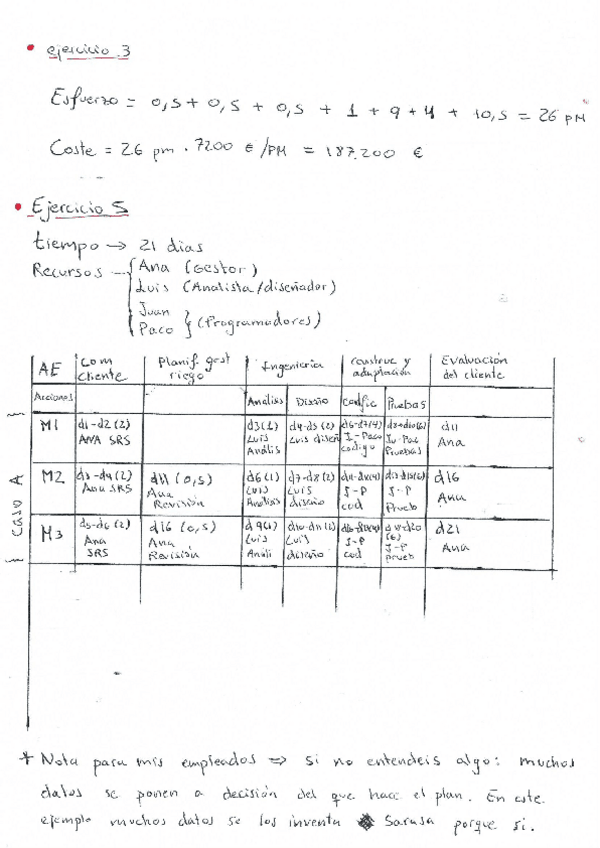 • ejercicio 3
Esfuerzo = 0,5 + 0,5 + 0,5 + 1 + 9 + 4 + 10,5 = 26 PM
Coste = 26 pm · 7200 €/PM = 187.200 €
• Ejercicio 5
tiempo → 21 dias
Recursos Ana (Gestor)
Luis (Analista/diseñador)
Juan
Paco (Programadores)
AE Com cliente Planif. gest riego Ingenieria construc y adaptación Evaluación del cliente
Acciones Analisis Diseño codfic Pruebas
M1 d1-d2(2) ANA SRS d3(1) Luis Anális d4-d5(2) Luis diseñ d6-d7(4) J-Paco codigo d8-d10(6) Ju-Pac Pruebas d11 Ana
M2 d3-d4(2) Ana SRS d11(0,5) Ana Revisión d6(1) Luis Analisis d7-d8(2) Luis diseño J-P cod J-P Prueb d16 Ana
M3 d5-d6(2) Ana SRS d16(0,5) Ana Revisión d9(1) Luis Análi d10-d11(2) Luis diseño J-P cod (6) J-P prueb d21 Ana
Caso A
* Nota para mis empleados => si no entendeis algo: muchos
datos se ponen a decisión del que hace el plan. En este
ejemplo muchos datos se los inventa Sarasa porque si.